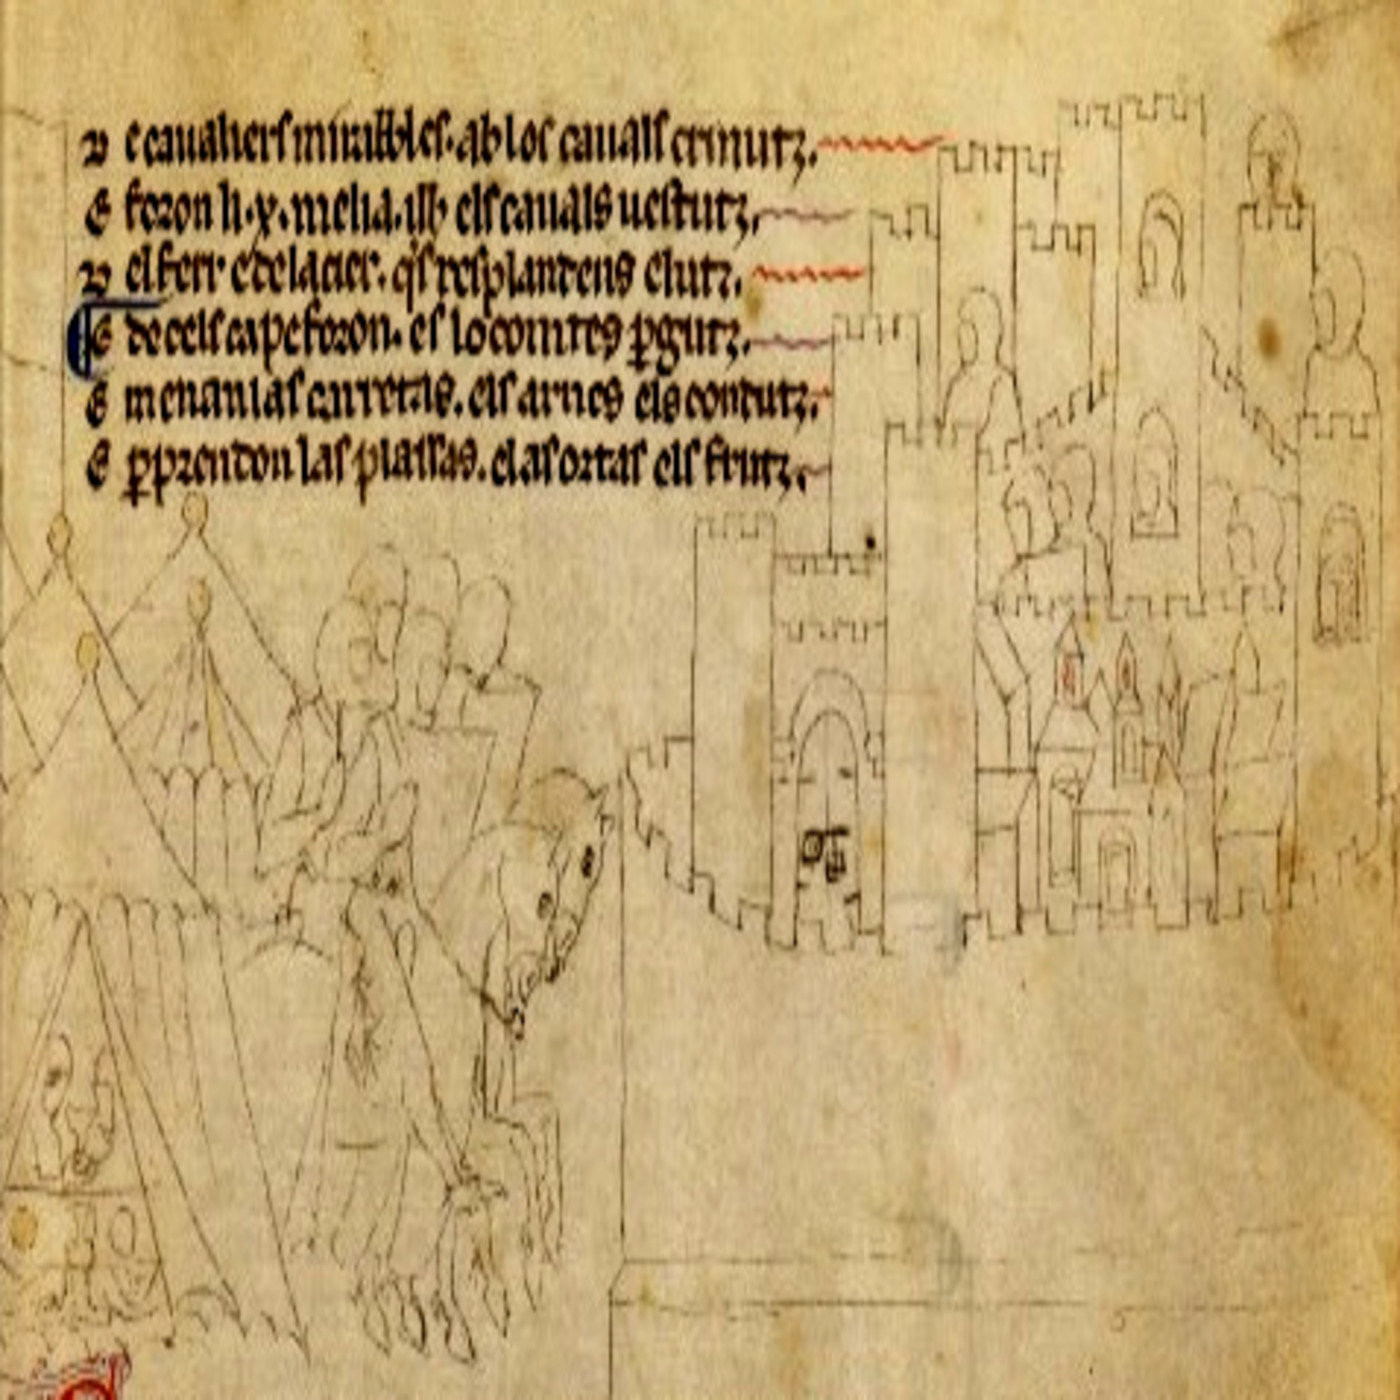 D e cauahers mirables. ab los cauals crinutz.
E foron li .x. melia. els cauals uestutz.
D el ferr e de lacier. qs resplandens e lutz.
E de cels cape foron. es lo comtes pgutz.
E menan las carretas. els arnes els condutz.
E pprendon las plassas. e las ortas els frutz.